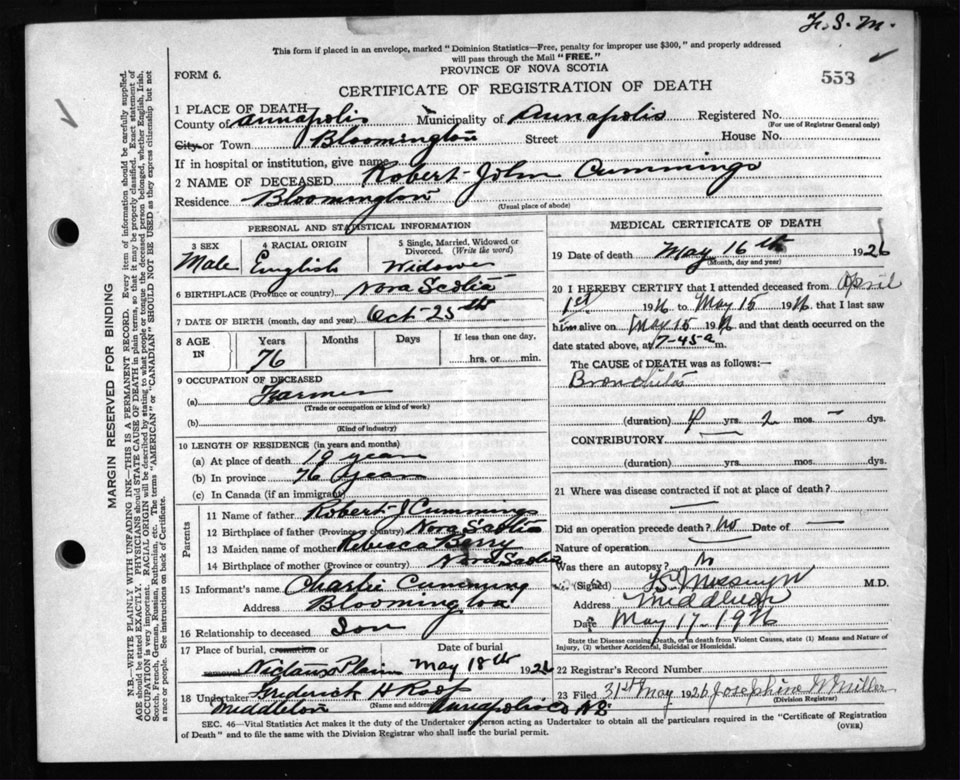 F. S. M.
This form if placed in an envelope, marked "Dominion Statistics—Free, penalty for improper use $300," and properly addressed
will pass through the Mail "FREE."
PROVINCE OF NOVA SCOTIA
FORM 6.
553
CERTIFICATE OF REGISTRATION OF DEATH
1 PLACE OF DEATH
County of Annapolis Municipality of Annapolis Registered No.
(For use of Registrar General only)
City or Town Bloomington Street House No.
If in hospital or institution, give name
2 NAME OF DECEASED Robert John Cummings
Residence Bloomington
(Usual place of abode)
PERSONAL AND STATISTICAL INFORMATION
3 SEX 4 RACIAL ORIGIN 5 Single, Married, Widowed or
Divorced. (Write the word)
Male English Widower
6 BIRTHPLACE (Province or country) Nova Scotia
7 DATE OF BIRTH (month, day and year) Oct-25th
8 AGE IN Years Months Days If less than one day,
76 hrs. or min.
9 OCCUPATION OF DECEASED
(a) Farmer
(Trade or occupation or kind of work)
(b)
(Kind of industry)
10 LENGTH OF RESIDENCE (in years and months)
(a) At place of death 19 years
(b) In province 76 years
(c) In Canada (if an immigrant)
Parents
11 Name of father Robert J Cummings
12 Birthplace of father (Province or country) Nova Scotia
13 Maiden name of mother Rebecca Berry
14 Birthplace of mother (Province or country) Nova Scotia
15 Informant's name Charlie Cumming
Address Bloomington
16 Relationship to deceased Son
17 Place of burial, cremation or Date of burial
removal Nictaux Plain May 18th 1926
18 Undertaker Frederick H Roop
(Name and address)
Middleton Annapolis Co N.S.
MEDICAL CERTIFICATE OF DEATH
19 Date of death May 16th 1926
(Month, day and year)
20 I HEREBY CERTIFY that I attended deceased from April
1st 1926 to May 15 1926, that I last saw
him alive on May 15 1926 and that death occurred on the
date stated above, at 7-45 a m.
The CAUSE of DEATH was as follows:—
Bronchitis
(duration) 4 yrs. 2 mos. — dys.
CONTRIBUTORY
(duration) yrs. mos. dys.
21 Where was disease contracted if not at place of death?
Did an operation precede death? No Date of —
Nature of operation
Was there an autopsy? No
(Signed) M.D.
Address Middleton
Date May 17 1926
State the Disease causing Death, or in death from Violent Causes, state (1) Means and Nature of
Injury, (2) whether Accidental, Suicidal or Homicidal.
22 Registrar's Record Number
23 Filed 31st May 1926 Josephine W Miller
(Division Registrar)
SEC. 46—Vital Statistics Act makes it the duty of the Undertaker or person acting as Undertaker to obtain all the particulars required in the "Certificate of Registration
of Death" and to file the same with the Division Registrar who shall issue the burial permit.
(OVER)
MARGIN RESERVED FOR BINDING
N.B.—WRITE PLAINLY WITH UNFADING INK—THIS IS A PERMANENT RECORD. Every item of information should be carefully supplied.
AGE should be stated EXACTLY. PHYSICIANS should STATE CAUSE OF DEATH in plain terms, so that it may be properly classified. Exact statement of
OCCUPATION is very important. RACIAL ORIGIN will be described by stating to what people or tongue the deceased person belonged, whether English, Irish,
Scotch, French, German, Russian, Ruthenian, etc. The terms "AMERICAN" or "CANADIAN" SHOULD NOT BE USED as they express citizenship but not
a race or people. See instructions on back of Certificate.